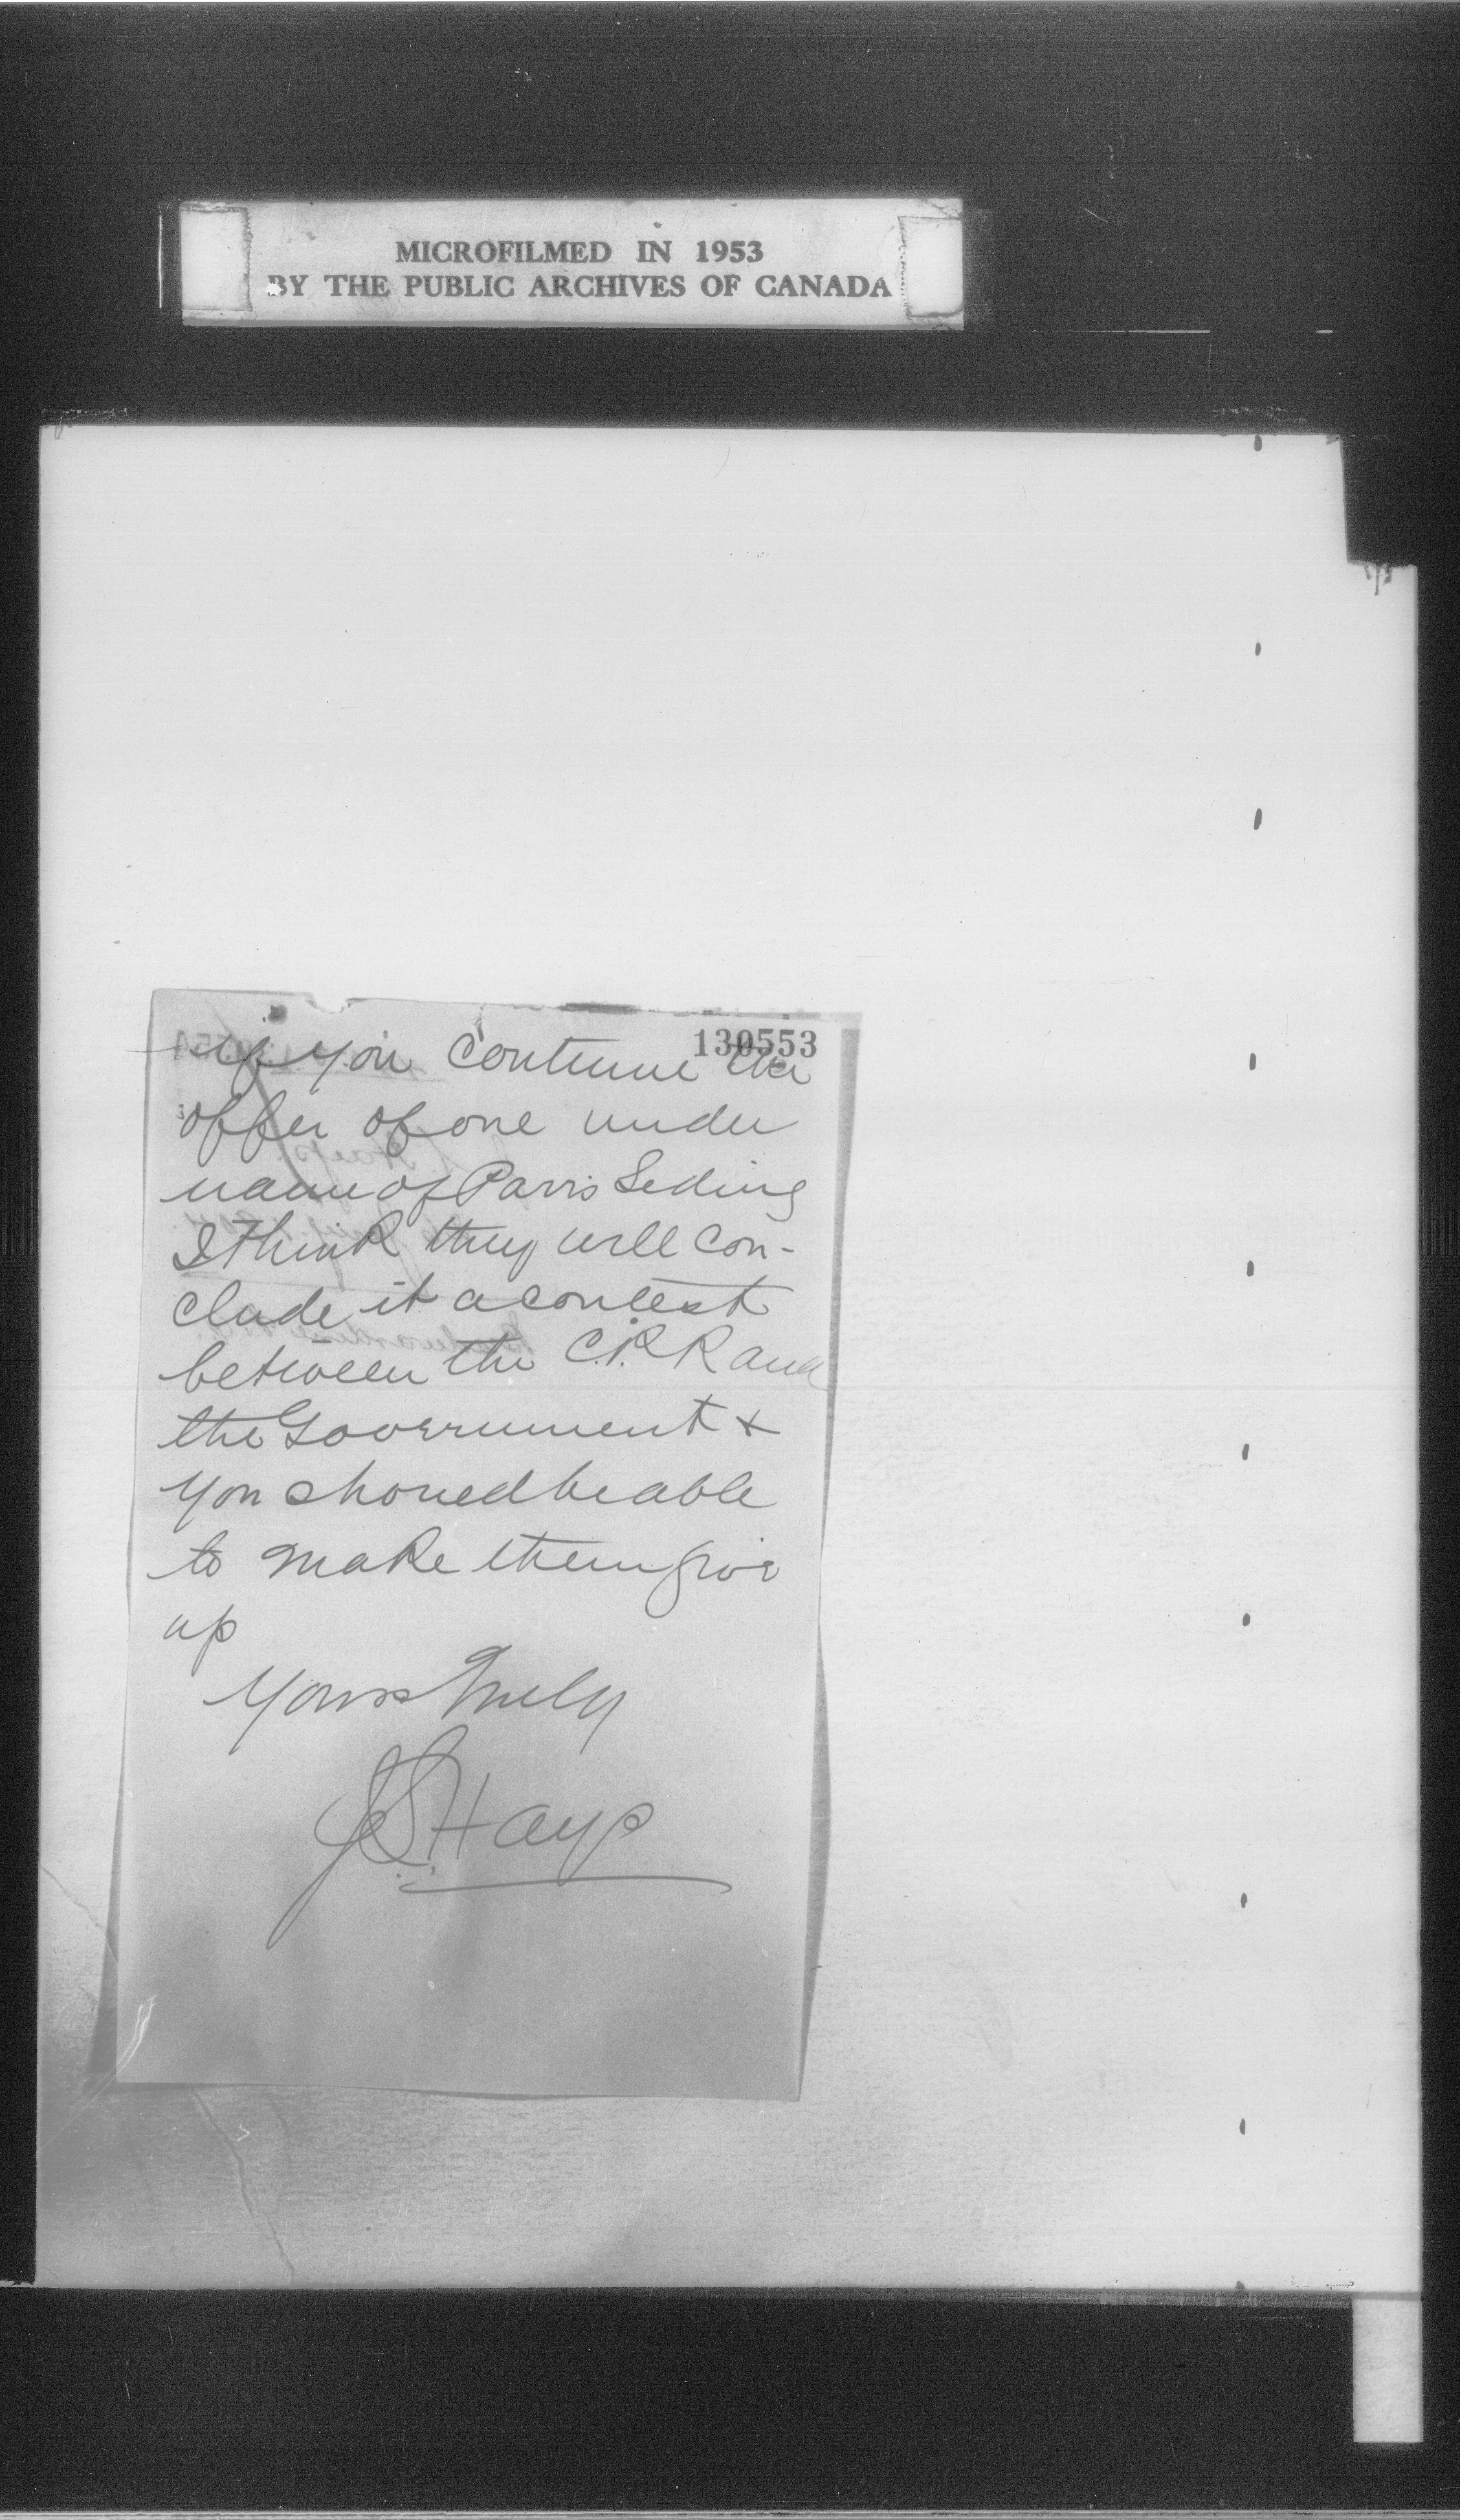 MICROFILMED IN 1953
BY THE PUBLIC ARCHIVES OF CANADA
130553
if you continue the
offer of one under
name of Parris Siding
I think they will con-
clude it a contest
between the C.P.R and
the Government &
you should be able
to make them give
up
Yours truly
J S Hays